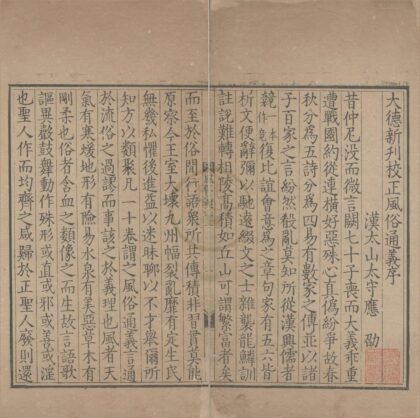 大德新刊校正風俗通義序
漢太山太守應 劭
昔仲尼没而微言闕七十子喪而大義乖重
遭戰國約從連橫好惡殊心真偽紛爭故春
秋分為五詩分為四易有數家之傳並以諸
子百家之言紛然殽亂莫知所從漢興儒者
競一本作竟復比誼會意為之章句家有五六皆
析文便辭彌以馳遠綴文之士雜襲龍鱗訓
註說難轉相陵高積如丘山可謂繁富者矣
而至於俗間行語衆所共傳積非習貫莫能
原察今王室大壞九州幅裂亂靡有定生民
無幾私懼後進益以迷昧聊以不才舉爾所
知方以類聚凡一十卷謂之風俗通義言通
於流俗之過謬而事該之於義理也風者天
氣有寒煖地形有險易水泉有美惡草木有
剛柔也俗者含血之類像之而生故言語歌
謳異聲鼓舞動作殊形或直或邪或善或淫
也聖人作而均齊之咸歸於正聖人廢則還